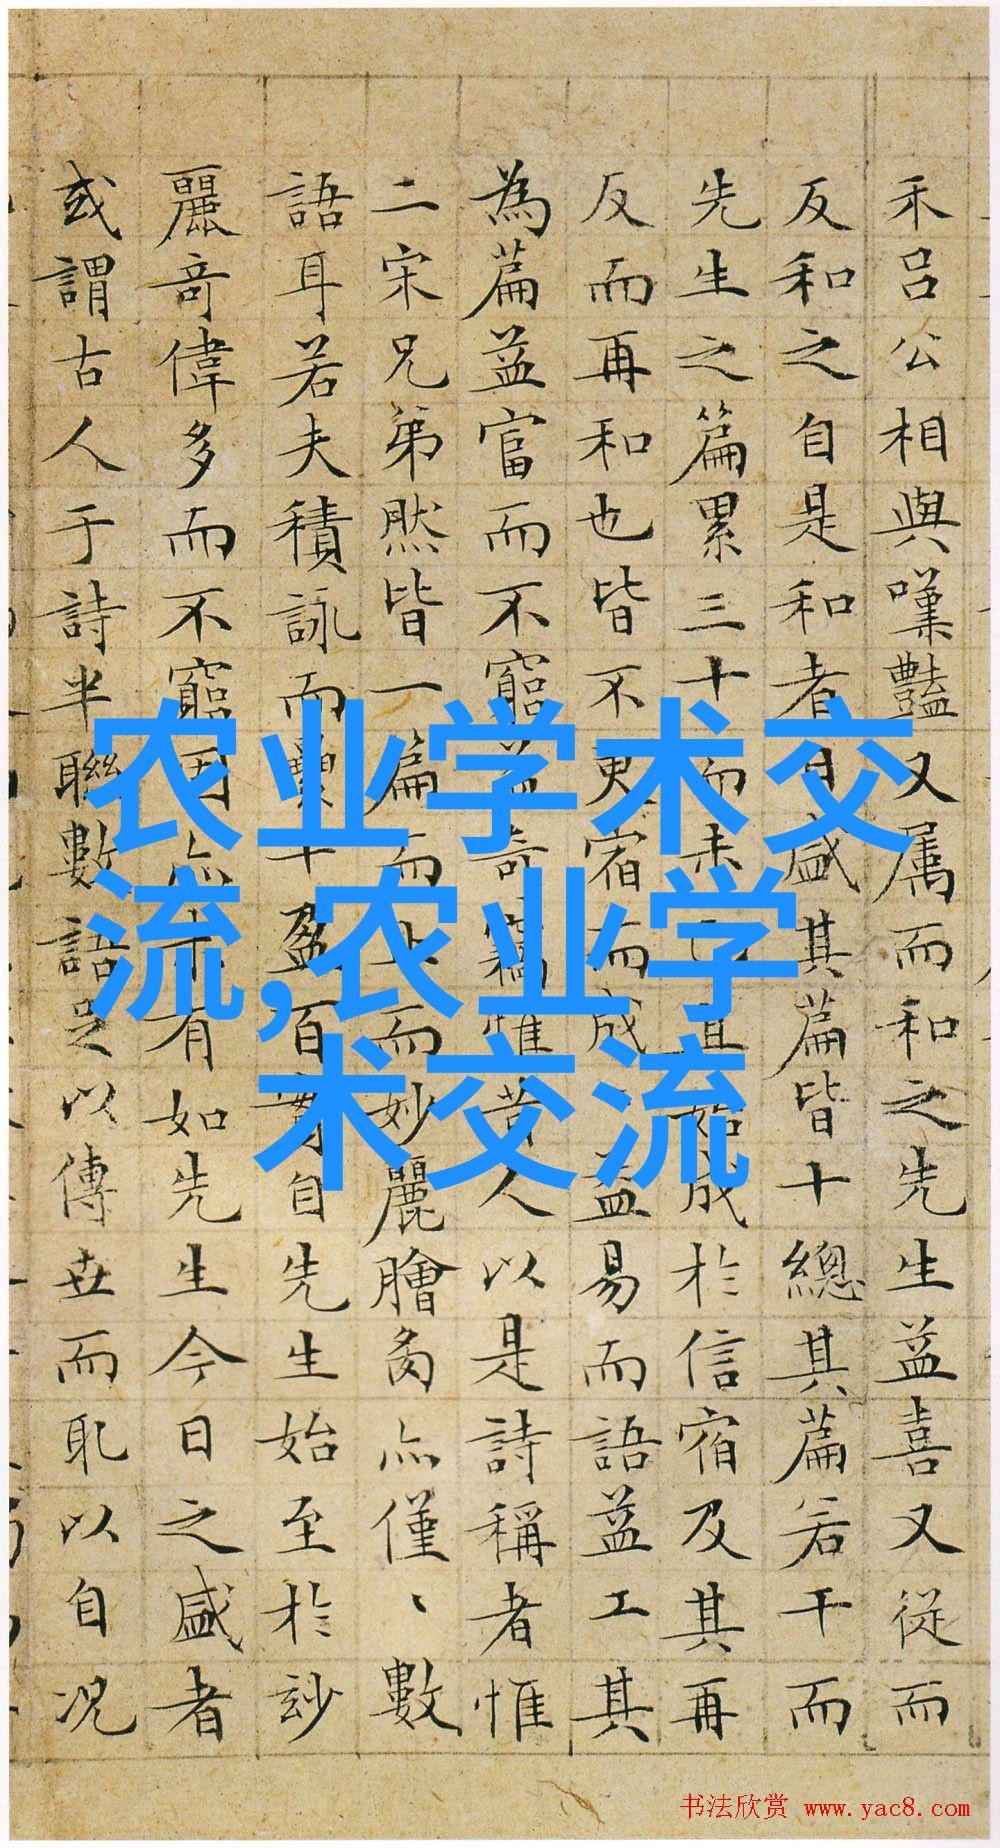 禾呂公相與嘆豔又属而和之先生益喜又從而
反和之自是和者日盛其篇皆十總其篇若干而
先生之篇累三十而未且始成於信宿及其再
反而再和也皆不更宿而成益易而語益工其
為篇益富而不窮益奇竊惟昔人以是詩稱者惟
二宋兄弟然皆一篇而止而妙麗膾炙亦僅〻數
語耳若夫積詠而纍十盈百自先生始至於玅
麗奇偉多而不窮因亦未有如先生今日之盛者
或謂古人于詩半聯數語足以傳世而耴以自況
农业学术交
流,农业学
术交流
书法欣赏 www.yac8.com